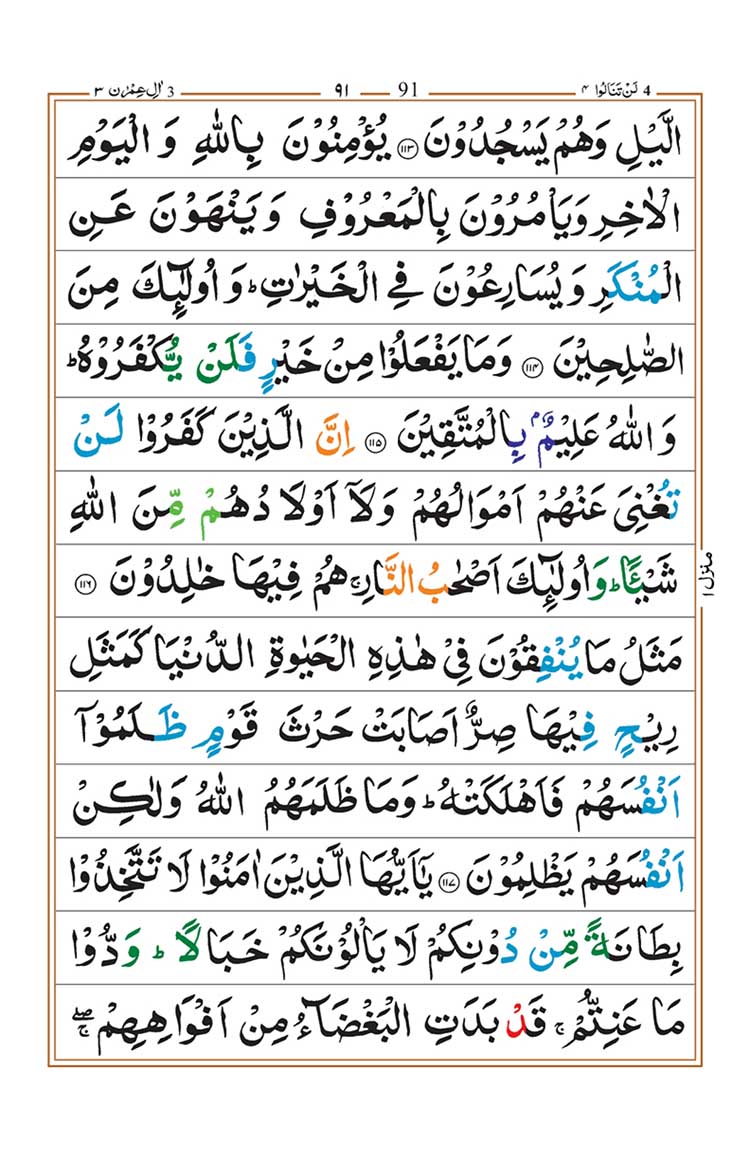 4 لَنْ تَنَالُوا ٤ 91 ٩١ 3 اٰلِ عِمْرٰن ٣
الَّيْلِ وَهُمْ يَسْجُدُوْنَ ۝١١٣ يُؤْمِنُوْنَ بِاللّٰهِ وَ الْيَوْمِ
الْاٰخِرِ وَيَاْمُرُوْنَ بِالْمَعْرُوْفِ وَ يَنْهَوْنَ عَنِ
الْمُنْكَرِ وَ يُسَارِعُوْنَ فِي الْخَيْرٰتِ ؕ وَ اُولٰٓئِكَ مِنَ
الصّٰلِحِيْنَ ۝١١٤ وَمَا يَفْعَلُوْا مِنْ خَيْرٍ فَلَنْ يُّكْفَرُوْهُ ؕ
وَ اللّٰهُ عَلِيْمٌۢ بِالْمُتَّقِيْنَ ۝١١٥ اِنَّ الَّذِيْنَ كَفَرُوْا لَنْ
تُغْنِيَ عَنْهُمْ اَمْوَالُهُمْ وَلَاۤ اَوْلَا دُهُمْ مِّنَ اللّٰهِ
شَيْـًٔا ؕ وَ اُولٰٓئِكَ اَصْحٰبُ النَّارِ ۚ هُمْ فِيْهَا خٰلِدُوْنَ ۝١١٦
مَثَلُ مَا يُنْفِقُوْنَ فِيْ هٰذِهِ الْحَيٰوةِ الدُّنْيَا كَمَثَلِ
رِيْحٍ فِيْهَا صِرٌّ اَصَابَتْ حَرْثَ قَوْمٍ ظَلَمُوْۤا
اَنْفُسَهُمْ فَاَهْلَكَتْهُ ؕ وَمَا ظَلَمَهُمُ اللّٰهُ وَلٰكِنْ
اَنْفُسَهُمْ يَظْلِمُوْنَ ۝١١٧ يٰۤاَيُّهَا الَّذِيْنَ اٰمَنُوْا لَا تَتَّخِذُوْا
بِطَانَةً مِّنْ دُوْنِكُمْ لَا يَاْلُوْنَكُمْ خَبَالًا ؕ وَدُّوْا
مَا عَنِتُّمْ ۚ قَدْ بَدَتِ الْبَغْضَآءُ مِنْ اَفْوَاهِهِمْ ۖۚ
منزل ١